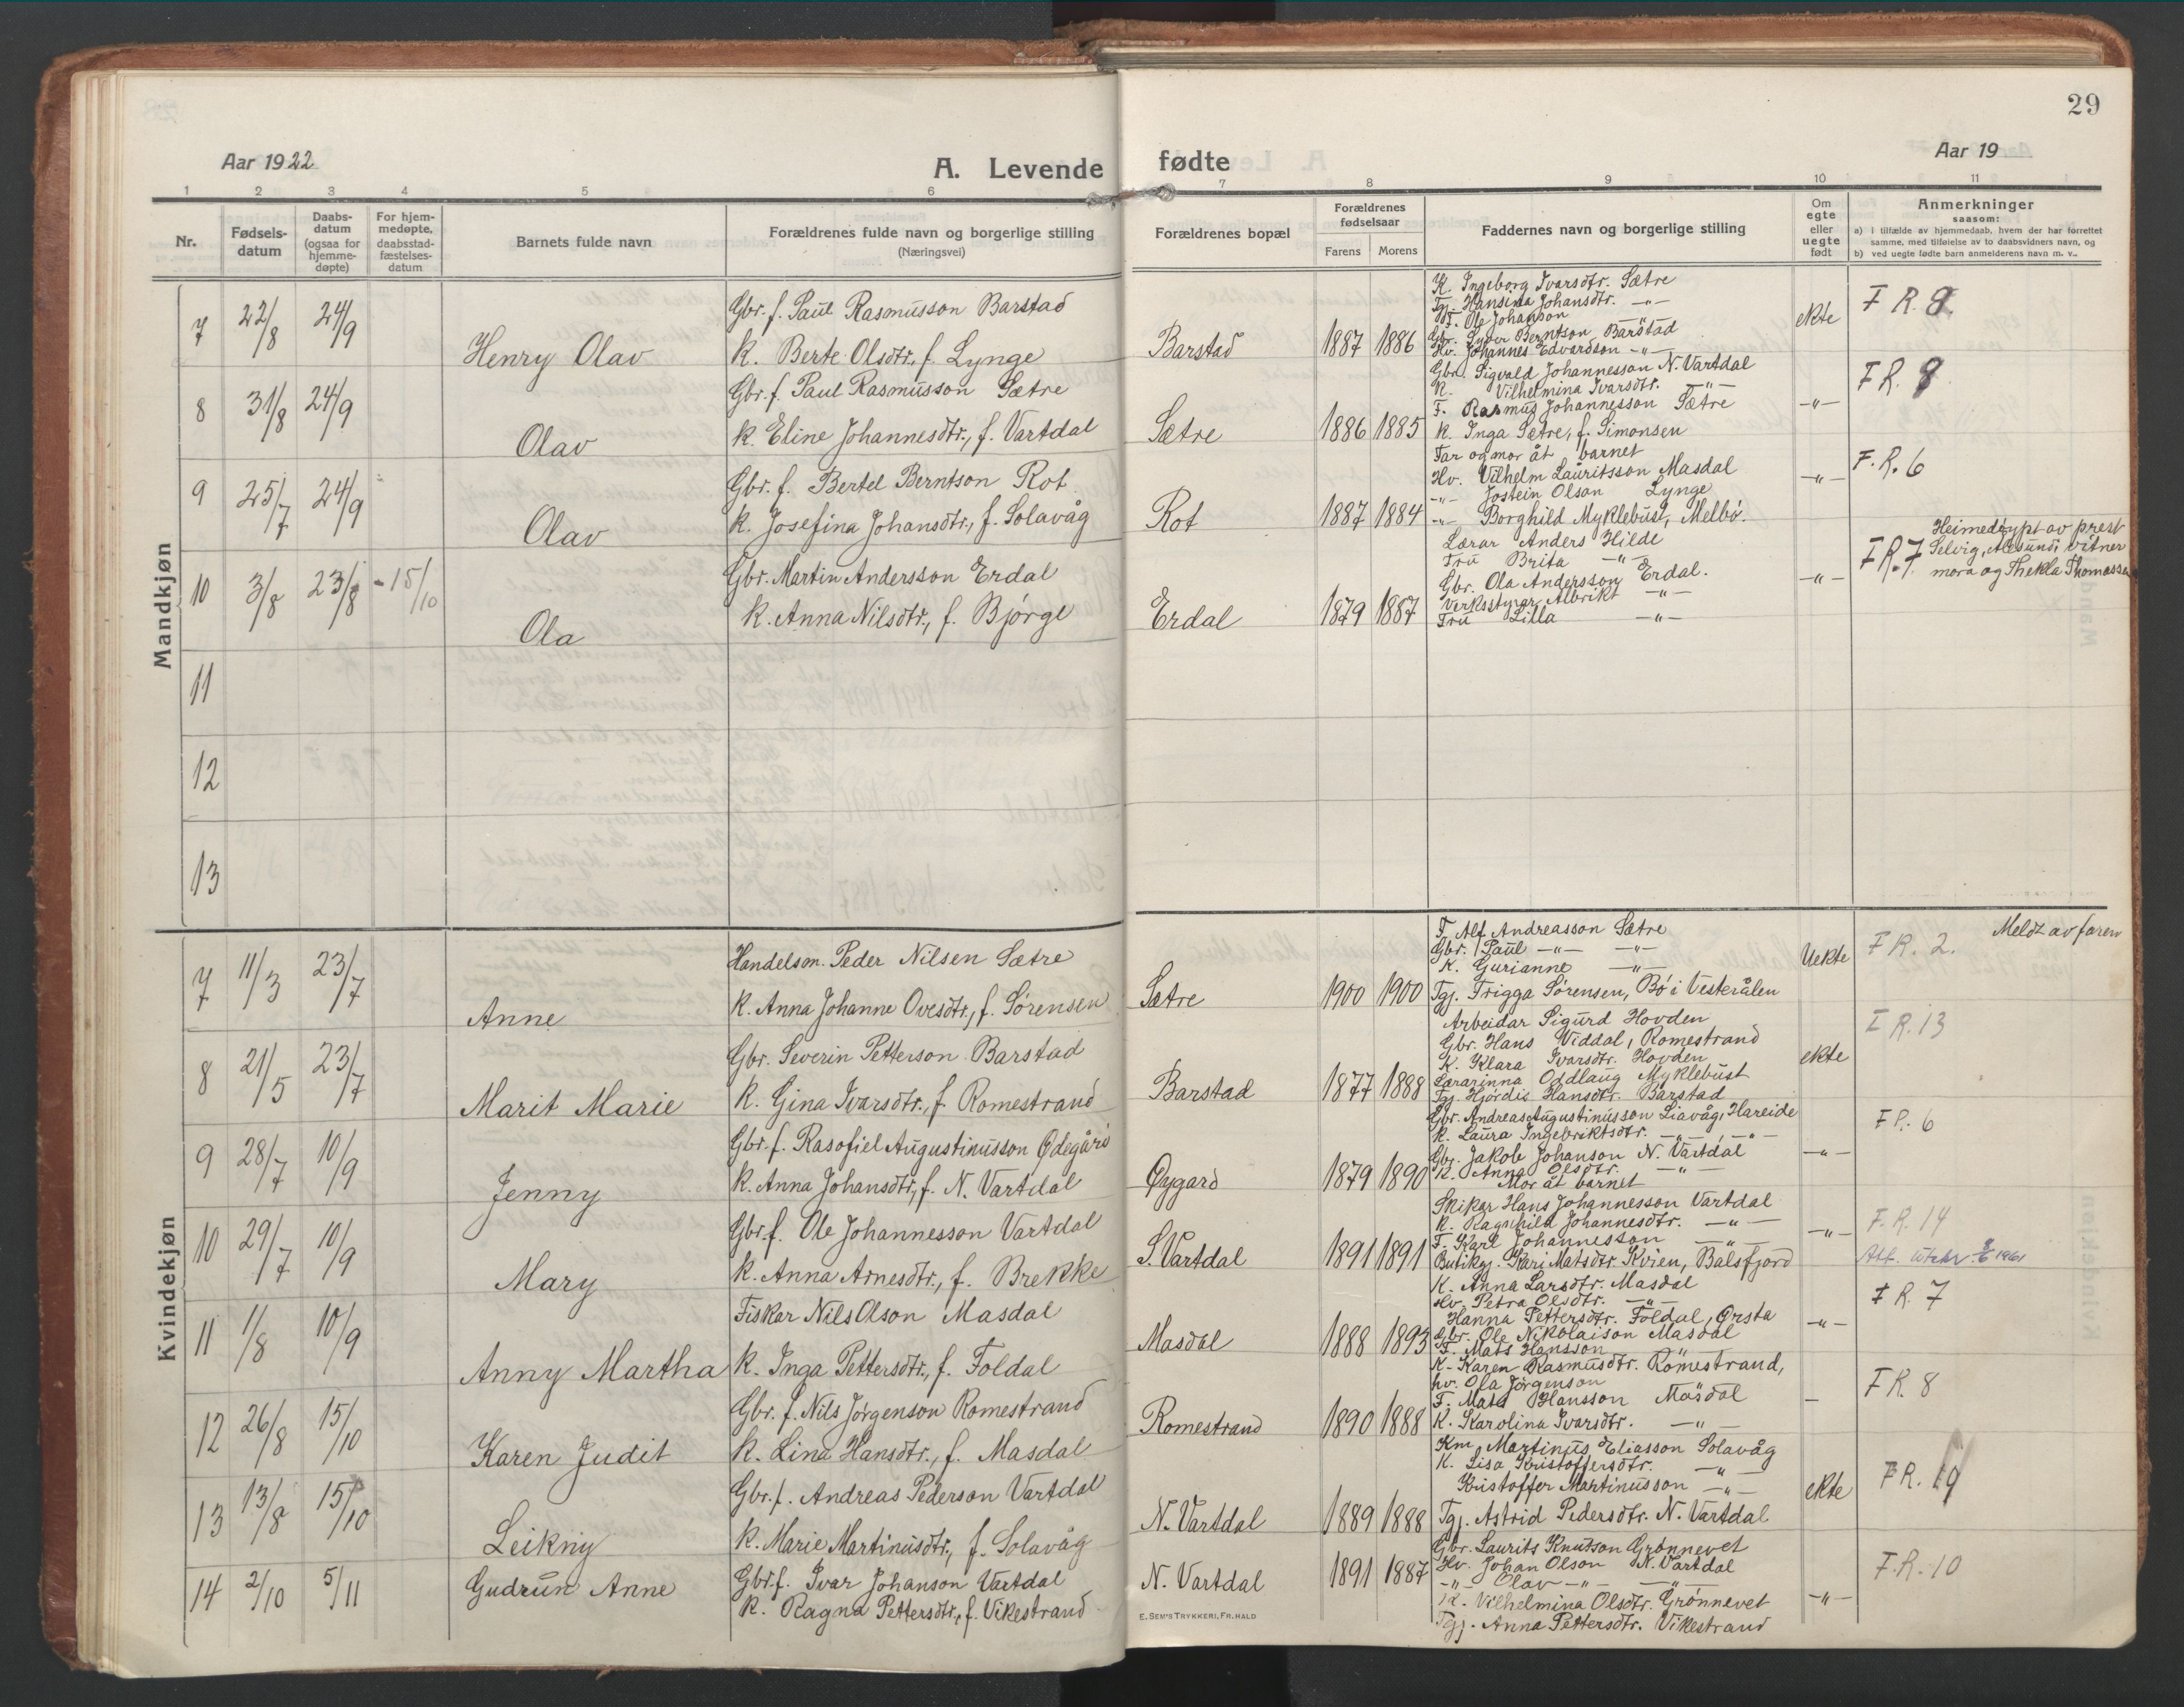 29
Aar 1922
A. Levende fødte
Aar 19
1 2 3 4 5 6 7 8 9 10 11
Nr.
Fødselsdatum
Daabsdatum (ogsaa for hjemmedøpte)
For hjemmedøpte, daabsstadfæstelsesdatum
Barnets fulde navn
Forældrenes fulde navn og borgerlige stilling
(Næringsvei)
Forældrenes bopæl
Forældrenes fødselsaar
Farens Morens
Faddernes navn og borgerlige stilling
Om egte eller uegte født
Anmerkninger
saasom:
a) i tilfælde av hjemmedaab, hvem der har forrettet
samme, med tilføielse av to daabsvidners navn, og
b) ved uegte fødte barn anmelderens navn m. v..
Mandkjøn
7 22/8 24/9 Henry Olav
Gbr. f. Paul Rasmusson Barstad
K. Berte Olsdtr., f. Lynge
Barstad 1887 1886
K. Ingeborg Ivarsdtr. Sætre
Tgj. Hansina Johansdtr. -"-
Ole Johanson -"-
Gbr. Syver Berntson Barstad
Hv. Johannes Edvardson -"-
ekte F R. 8.
8 31/8 24/9 Olav
Gbr. f. Paul Rasmusson Sætre
K. Eline Johannesdtr., f. Vartdal
Sætre 1886 1885
Gbr. Sigvald Johannesson N. Vartdal
K. Vilhelmina Ivarsdtr. -"-
F. Rasmus Johannesson Sætre
K. Inga Sætre, f. Simonsen
Far og mor åt barnet
-"- F R. 9
9 25/7 24/9 Olav
Gbr. f. Bertel Berntson Rot
K. Josefina Johansdtr., f. Solavåg
Rot 1887 1884
Hv. Vilhelm Lauritsson Masdal
-"- Jostein Olson Lynge
-"- Borghild Myklebust, Melbø.
-"- F. R. 6
10 3/8 23/8 - 15/10 Ola
Gbr. Martin Andersson Erdal
K. Anna Nilsdtr., f. Bjørge
Erdal 1879 1887
Lærar Anders Hilde
Fru Brita -"-
Gbr. Ola Andersson Erdal.
Verksstyrar Albrikt -"-
Fru Lilla -"-
-"- F R. 7
Heimedøypt av prest
Selvig, Ålesund, vitner
mora og Thekla Thomassen
11
12
13
Kvindekjøn
7 11/3 23/7 Anne
Handelsm. Peder Nilsen Sætre
K. Anna Johanne Ovesdtr., f. Sørensen
Sætre 1900 1900
F. Alf Andreasson Sætre
Gbr. Paul -"- -"-
K. Gurianne -"-
Tgj. Frigga Sørensen, Bø i Vesterålen
Uekte F R. 2. Meldt av faren
8 21/5 23/7 Marit Marie
Gbr. Severin Petterson Barstad
K. Gina Ivarsdtr., f. Romestrand
Barstad 1877 1888
Arbeidar Sigurd Hovden
Gbr. Hans Viddal, Romestrand
K. Klara Ivarsdtr. Hovden
Lærarinna Oddlaug Myklebust
Tgj. Hjørdis Hansdtr. Barstad
ekte F R. 13
9 28/7 10/9 Jenny
Gbr. f. Rasofiel Augustinusson Ødegård
K. Anna Johansdtr., f. N. Vartdal
Øygard 1879 1890
Gbr. Andreas Augustinusson Liavåg, Hareide
K. Laura Ingebriktsdtr. -"- , -"-
Gbr. Jakob Johanson N. Vartdal
K. Anna Olsdtr. -"-
Mor åt barnet
-"- F R. 6
10 29/7 10/9 Mary
Gbr. f. Ole Johannesson Vartdal
K. Anna Arnesdtr., f. Brekke
S. Vartdal 1891 1891
Hans Johannesson Vartdal
K. Ragnhild Johannesdtr. -"-
F. Karl Johannesson -"-
Butikgj. Kari Matsdtr. Kvien, Balsfjord
-"- F. R. 14
1961
11 1/8 10/9 Anny Martha
Fiskar Nils Olson Masdal
K. Inga Pettersdtr., f. Foldal
Masdal 1888 1893
K. Anna Larsdtr. Masdal
Hv. Petra Olsdtr. -"-
Hanna Pettersdtr. Foldal, Ørsta
Gbr. Ole Nikolaison Masdal
F. Mats Hansson -"-
-"- F R. 7
12 26/8 15/10 Karen Judit
Gbr. f. Nils Jørgenson Romestrand
K. Lina Hansdtr., f. Masdal
Romestrand 1890 1888
K. Karen Rasmusdtr. Romestrand,
hv. Ola Jørgenson
F. Mats Hansson Masdal
K. Karolina Ivarsdtr. -"-
- F R. 8
13 13/8 15/10 Leikny
Gbr. f. Andreas Pederson Vartdal
K. Marie Martinusdtr., f. Solavåg
N. Vartdal 1889 1888
Km. Martinus Eliasson Solavåg
K. Lisa Kristoffersdtr. -"-
Kristoffer Martinusson -"-
Tgj. Astrid Pedersdtr. N. Vartdal
ekte F R.
14 2/10 5/11 Gudrun Anne
Gbr. f. Ivar Johanson Vartdal
K. Ragna Pettersdtr., f. Vikestrand
N. Vartdal 1891 1887
Gbr. Laurits Knutson Grønnevet
Hv. Johan Olson N. Vartdal
-"- Olav -"- -"-
K. Vilhelmina Olsdtr. Grønnevet
Tgj. Anna Pettersdtr. Vikestrand
-"- F. R. 10
E. SEM'S TRYKKERI, FR. HALD